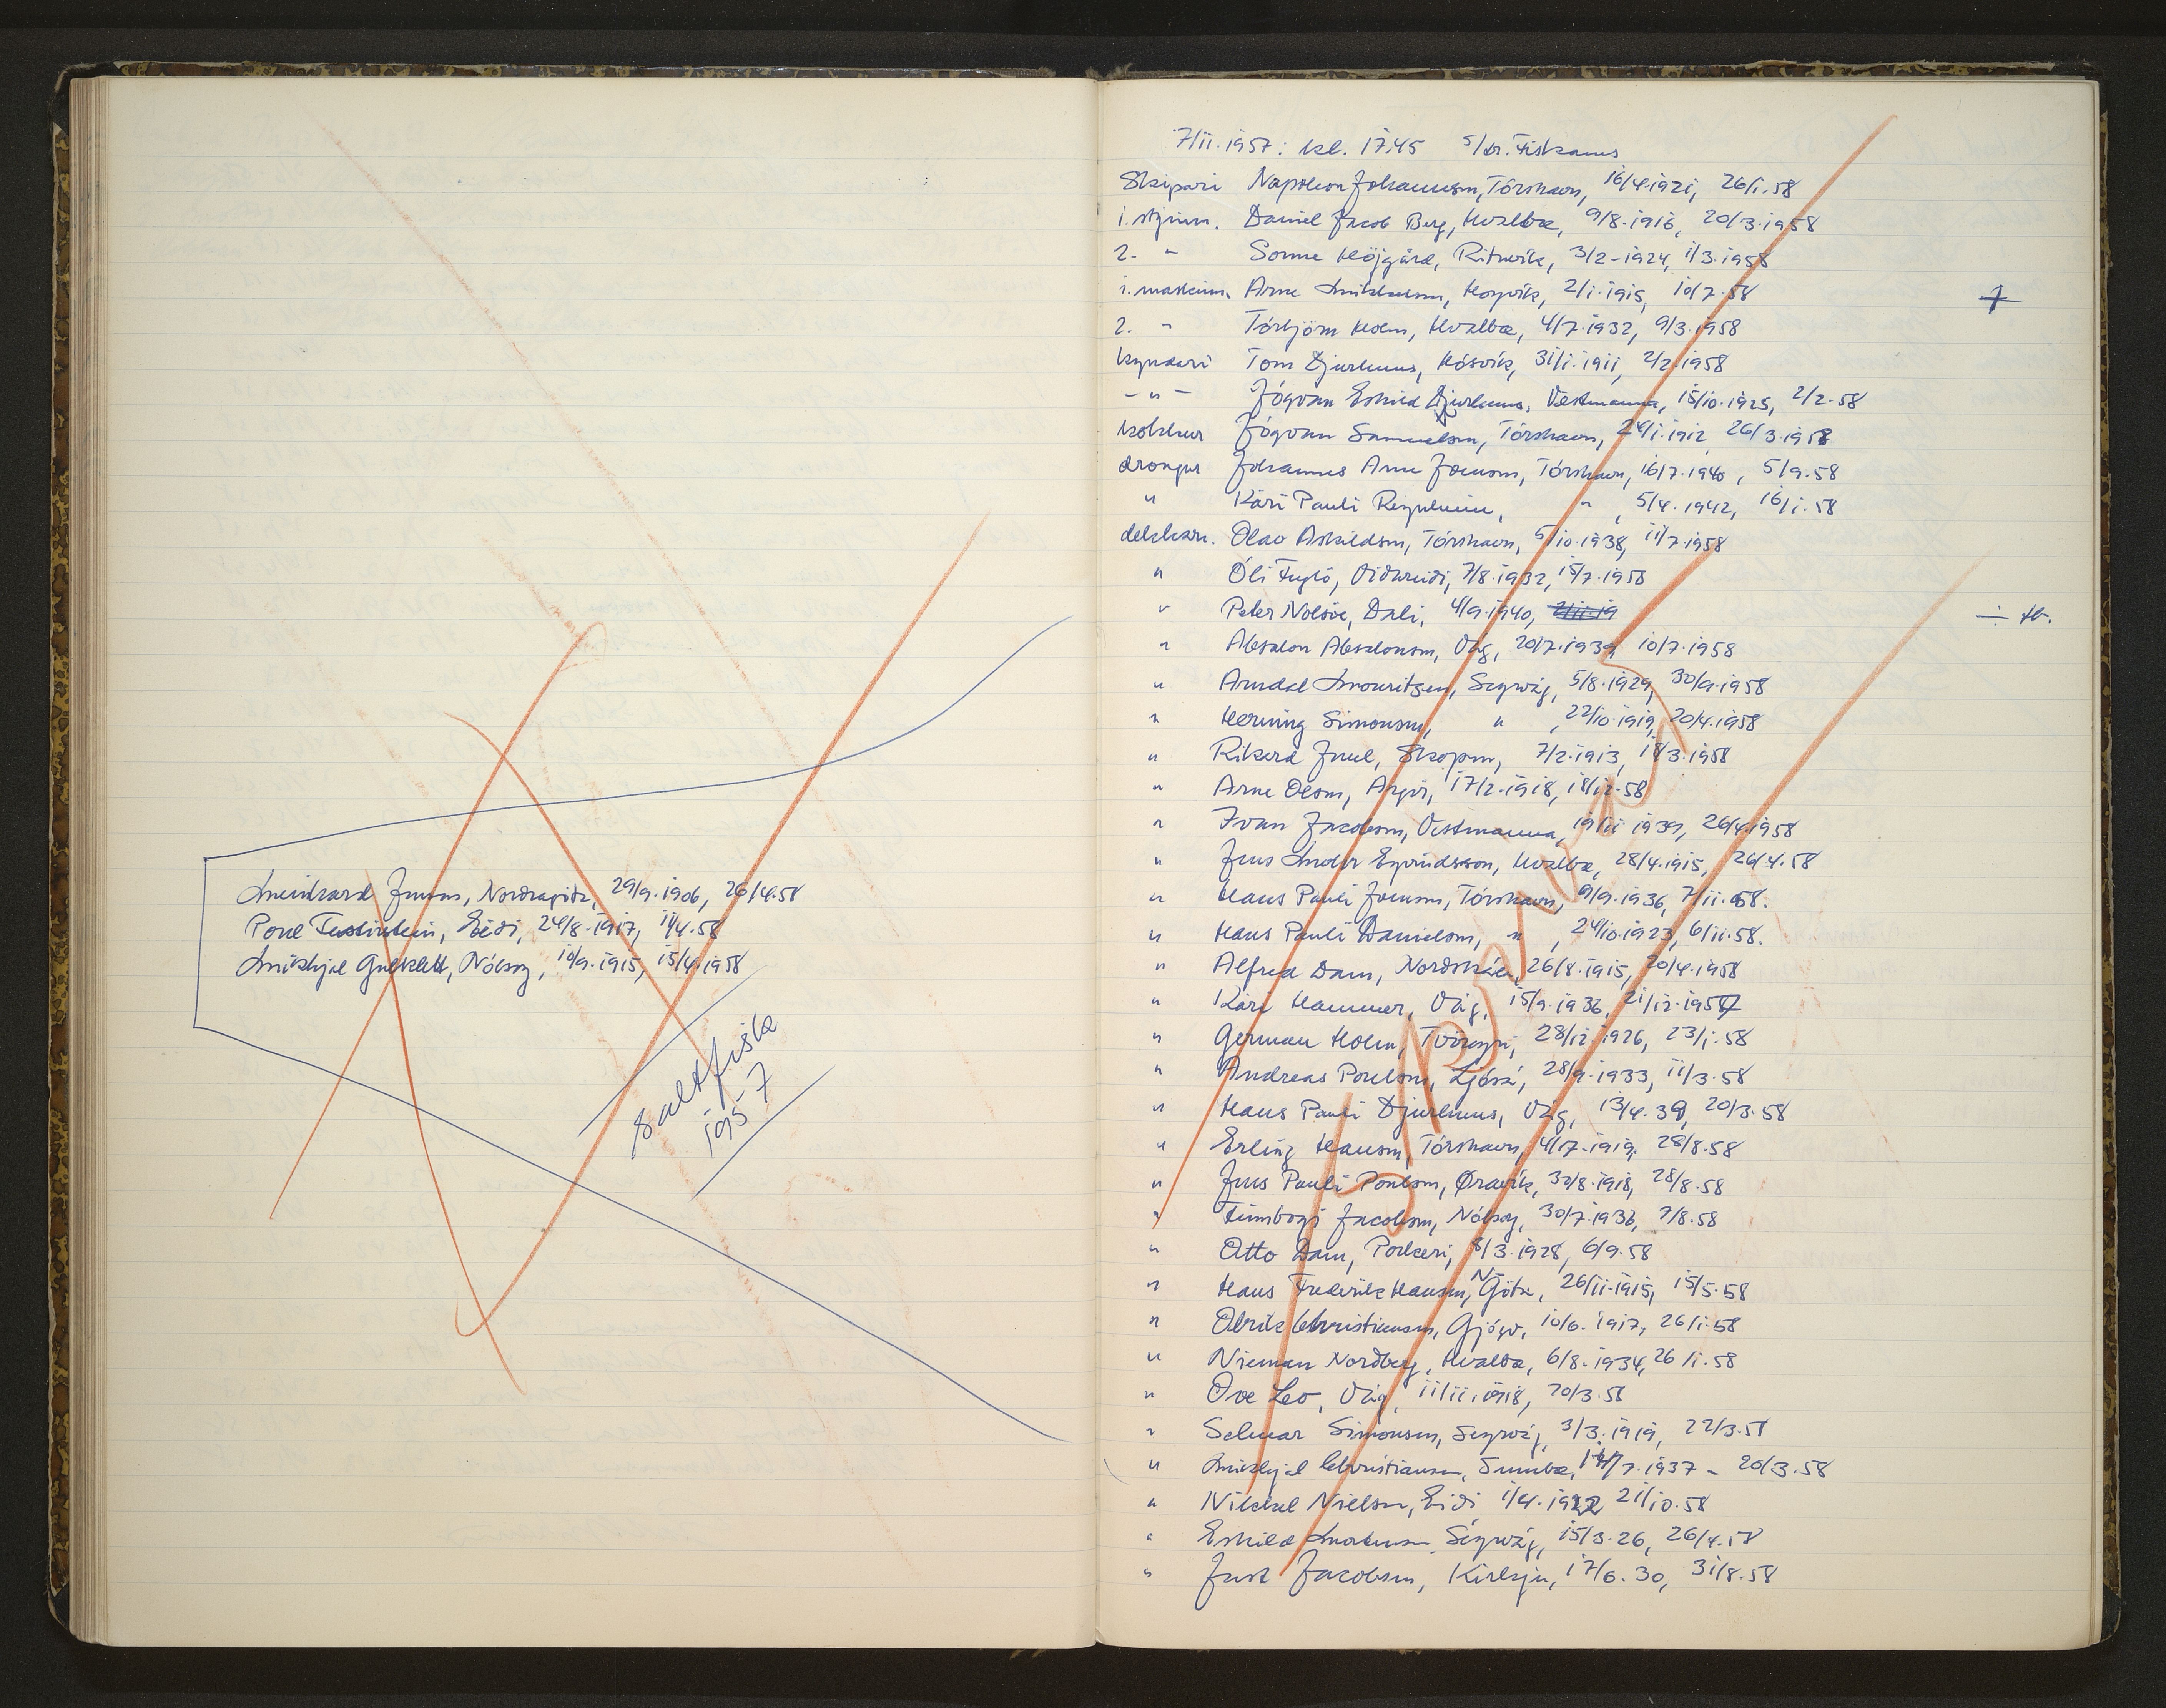 Meinhard Jensen, Norðragøta, 29/9.1906, 26/4.58
Poul Testirstein, Eiði, 24/8.1917, 11/4.58
Mikkjal Gulklett, Nólsoy, 10/9.1915, 15/4.1958
Saltfisk
1957
7/11.1957: kl. 17,45 s/tr. Fiskanes
Skipari Napoleon Johannesen, Tórshavn, 16/4.1921, 26/1.58
1. stýrim. Daniel Jacob Berg, Hvalba, 9/8.1916, 20/3.1958
2. " Sonne Højgård, Rituvík, 3/2-1924, 1/3.1958
1. maskinm. Arne Mikkelsen, Hoyvík, 2/1.1915, 10/7.58
2. " Torbjörn Holm, Hvalba, 4/7.1932, 9/3.1958
kyndari Tom Djurhuus, Kósvík, 31/1.1911, 2/2.1958
- " - Jógvan Eskild Djurhuus, Vestmanna, 15/10.1925, 2/2.58
kokkur Jógvan Samuelsen, Tórshavn, 24/1.1912 26/3.1958
drongur Johannes Arne Joensen, Tórshavn, 16/7.1940, 5/9.58
" Kári Pauli " , 5/4.1942, 16/1.58
dekkari. Olav Askildsen, Tórshavn, 5/10.1938, 11/7.1958
" Óli Fugló, Viðareiði, 7/8.1932, 15/7.1958
" Peter Nolsøe, Dali, 4/9.1940, 2/11.19
÷ tb.
" Absalon Absalonsen, Vág, 20/7.1939, 10/7.1958
" Arndal Mouritsen, Segrvág, 5/8.1929, 30/9.1958
" Henning Simonsen, " , 22/10.1919, 20/4.1958
" Rikard Juul, Skopun, 7/2.1913, 18/3.1958
" Arne Olsen, Argir, 17/2.1918, 18/12.58
" Ivan Jacobsen, Vestmanna, 19/11 1939, 26/4.1958
" Jens Eyvindsson, Hvalba, 28/4.1915, 26/4.58
" Hans Pauli Joensen, Tórshavn, 9/9.1936, 7/11.58.
" Hans Pauli Danielsen, " , 24/10.1923, 6/11.58.
" Alfred Dam, Norðskála, 26/8.1915, 20/4.1958
" Kári Hammer, Vág, 15/9.1936, 21/12.1957
" German Holm, Tvöroyri, 28/12.1926, 23/1.58
" Andreas Poulsen, Ljósá, 28/9.1933, 11/3.58
" Hans Pauli Djurhuus, Vág, 13/4.39, 20/3.58
" Erling Hansen, Tórshavn, 4/17-1919, 28/8.58
" Jens Pauli Poulsen, Øravík, 30/8.1918, 28/8.58
" Finnbogi Jacobsen, Nólsoy, 30/7.1936, 7/8.58
" Otto Dam, Porkeri, 8/3.1928, 6/9.58
" Hans Frederik Hansen, N-Gøta, 26/11.1915, 15/5.58
" Olrik Christiansen, Gjógv, 10/6.1917, 26/1.58
" Nieman Nordberg, Hvalba, 6/8.1934, 26/1.58
" Ove Leo, Vág, 11/11.1918, 20/3.58
" Selmar Simonsen, Segrvág, 3/3.1919, 22/3.58
" Mikkjal Christiansen, Sumba, 14/7.1937 - 20/3.58
" Nikkel Nielsen, Eiði 1/4.1922 21/10.58
" Eskild Mortensen, Segrvág, 15/3.26, 26/4.58
" Just Jacobsen, Kirkju, 17/6.30, 31/8.58